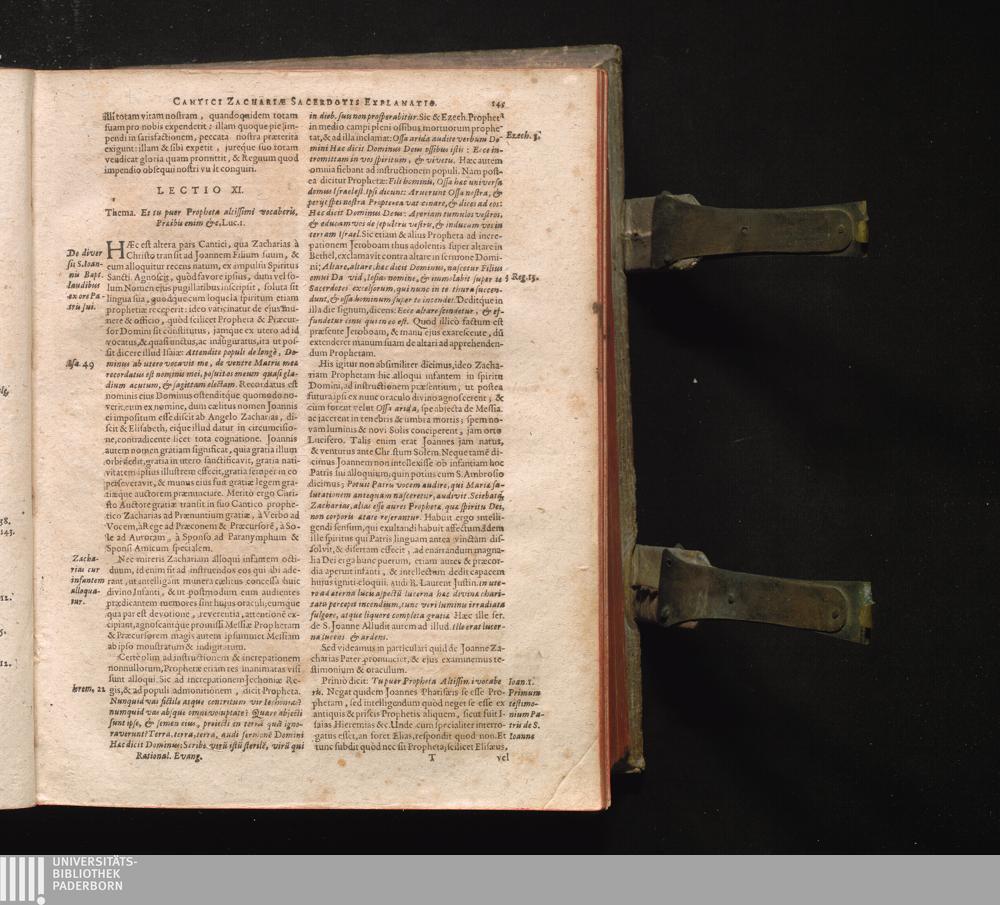 CANTICI ZACHARIÆ SACERDOTIS EXPLANATIO. 145
illi totam vitam nostram, quandoquidem totam
suam pro nobis expenderit: illam quoque pie im-
pendi in satisfactionem, peccata nostra præterita
exigunt: illam & sibi expetit, jureque suo totam
vendicat gloria quam promittit, & Regnum quod
impendio obsequii nostri vult conquiri.
LECTIO XI.
Thema. Et tu puer Propheta altissimi vocaberis,
Præibis enim &c. Luc. 1.
De diver
sis S. Ioan-
nis Bapt.
laudibus
ex ore Pa-
tris sui.
HÆc est altera pars Cantici, qua Zacharias à
Christo transit ad Joannem Filium suum, &
eum alloquitur recens natum, ex impulsu Spiritus
Sancti. Agnoscit, quòd favore ipsius, dum vel so-
lum Nomen ejus pugillatibus inscripsit, soluta sit
lingua sua, quodque cum loquela spiritum etiam
prophetiæ receperit: ideo vaticinatur de ejus mu-
nere & officio, quòd scilicet Propheta & Præcur-
sor Domini sit constitutus, jamque ex utero ad id
vocatus, & quasi unctus, ac inauguratus, ita ut pos-
sit dicere illud Isaiæ: Attendite populi de longè, Do-
Isa. 49
minus ab utero vocavit me, de ventre Matris meæ
recordatus est nominis mei, posuit os meum quasi gla-
dium acutum, & sagittam electam. Recordatus est
nominis ejus Dominus ostenditque quomodo no-
verit eum ex nomine, dum cælitus nomen Joannis
ei impositum esse discit ab Angelo Zacharias, di-
scit & Elisabeth, eique illud datur in circumcisio-
ne, contradicente licet tota cognatione. Joannis
autem nomen gratiam significat, quia gratia illum
orbi dedit, gratia in utero sanctificavit, gratia nati-
vitatem ipsius illustrem effecit, gratia semper in eo
perseveravit, & munus ejus fuit gratiæ legem gra-
tiæque auctorem prænunciare. Meritò ergo Chri-
sto Auctore gratiæ transit in suo Cantico prophe-
tico Zacharias ad Prænuntium gratiæ, à Verbo ad
Vocem, à Rege ad Præconem & Præcursorē, à So-
le ad Auroram, à Sponso ad Paranymphum &
Sponsi Amicum specialem.
Zacha-
rias cur
infantem
alloqua-
tur.
Nec mireris Zachariam alloqui infantem octi-
duum, id enim fit ad instruendos eos qui ibi ade-
rant, ut intelligant munera cælitus concessa huic
divino Infanti, & ut postmodum eum audientes
prædicantem memores sint hujus oraculi, eumque
qua par est devotione, reverentia, attentionē ex-
cipiant, agnoscantque promissi Messiæ Prophetam
& Præcursorem magis autem ipsummet Messiam
ab ipso monstratum & indigitatum.
Certè olim ad instructionem & increpationem
nonnullorum, Prophetæ etiam res inanimatas visi
sunt alloqui. Sic ad increpationem Jechoniæ Re-
Ierem. 22
gis, & ad populi admonitionem, dicit Propheta.
Nunquid vas fictile atque contritum vir Iechonias?
numquid vas absque omni voluptate? Quare abjecti
sunt ipse, & semen eius, proiecti in terrā quā igno-
raverunt? Terra, terra, terra, audi sermonē Domini
Hæc dicit Dominus: Scribe virū istū sterilē, virū qui
Rational. Evang.
in dieb. suis non prosperabitur. Sic & Ezech. Propheta
in medio campi pleni ossibus mortuorum prophe-
tat, & ad illa inclamat: Ossa arida audite verbum Do-
Ezech. 3.
mini Hæc dicit Dominus Deus ossibus istis: Ecce in-
tromittam in vos spiritum, & vivetis. Hæc autem
omnia fiebant ad instructionem populi. Nam post-
ea dicitur Prophetæ: Fili hominis, Ossa hæc universa
domus Israel est. Ipsi dicunt: Aruerunt Ossa nostra, &
perijt spes nostra Propterea vaticinare, & dices ad eos:
Hæc dicit Dominus Deus: Aperiam tumulos vestros,
& educam vos de sepulcris vestris, & inducam vos in
terram Israel. Sic etiam & alius Propheta ad incre-
pationem Jeroboam thus adolentis super altare in
Bethel, exclamavit contra altare in sermone Domi-
ni; Altare, altare, hæc dicit Dominus, nascetur Filius
domui David, Iosias nomine, & immolabit super te
3 Reg. 13.
Sacerdotes excelsorum, qui nunc in te thura succen-
dunt, & ossa hominum super te incendet. Deditque in
illa die signum, dicens: Ecce altare scindetur, & ef-
fundetur cinis qui in eo est. Quod illicò factum est
præsente Jeroboam, & manus ejus exarescente, dū
extenderet manum suam de altari ad apprehenden-
dum Prophetam.
His igitur non absimiliter dicimus, ideo Zacha-
riam Prophetam hic alloqui infantem in spiritu
Domini, ad instructionem præsentium, ut postea
futura ipsi ex nunc oraculo divino agnoscerent; &
cum forent velut Ossa arida, spe abjecta de Messia.
ac jacerent in tenebris & umbra mortis; spem no-
vam luminis & novi Solis conciperent, jam orto
Lucifero. Talis enim erat Joannes jam natus,
& venturus ante Christum Solem. Neque tamē di-
cimus Joannem non intellexisse ob infantiam hoc
Patris sui alloquium, quin potius cum S. Ambrosio
dicimus; Potuit Patris vocem audire, qui Mariæ sa-
lutationem antequam nasceretur, audivit. Sciebatq́;
Zacharias, alias esse aures Prophetæ, quæ spiritu Dei,
non corporis ætate reserantur. Habuit ergo intelli-
gendi sensum, qui exultandi habuit affectum. Idem
ille spiritus qui Patris linguam antea vinctam dis-
solvit, & disertam effecit, ad enarrandum magna-
lia Dei erga hunc puerum, etiam aures & præcor-
dia aperuit infanti, & intellectum dedit capacem
hujus igniti eloquii. audi B. Laurent Justin. in ute-
ro ad æternæ lucis aspectū lucerna hæc divinæ chari-
tatis percepit incendium, tunc veri luminis irradiata
fulgore, atque liquore completa gratiæ. Hæc ille ser.
de S. Joanne Alludit autem ad illud. Ille erat lucer-
na lucens & ardens.
Sed videamus in particulari quid de Joanne Za-
charias Pater pronunciet, & ejus examinemus te-
stimonium & oraculum.
Ioan. 1.
Primum
testimo-
nium Pa-
tris de S.
Ioanne
Primò dicit: Tu puer Propheta Altissimi vocabe
ris. Negat quidem Joannes Pharisæis se esse Pro-
phetam, sed intelligendum quòd neget se esse ex
antiquis & priscis Prophetis aliquem, sicut fuit I-
saias Hieremias &c. Unde cum specialiter interro-
gatus esset, an foret Elias, respondit quod non. Et
tunc subdit quòd nec sit Propheta, scilicet Elisæus,
T
vel
38.
143.
12.
5.
12.
UNIVERSITÄTS-
BIBLIOTHEK
PADERBORN